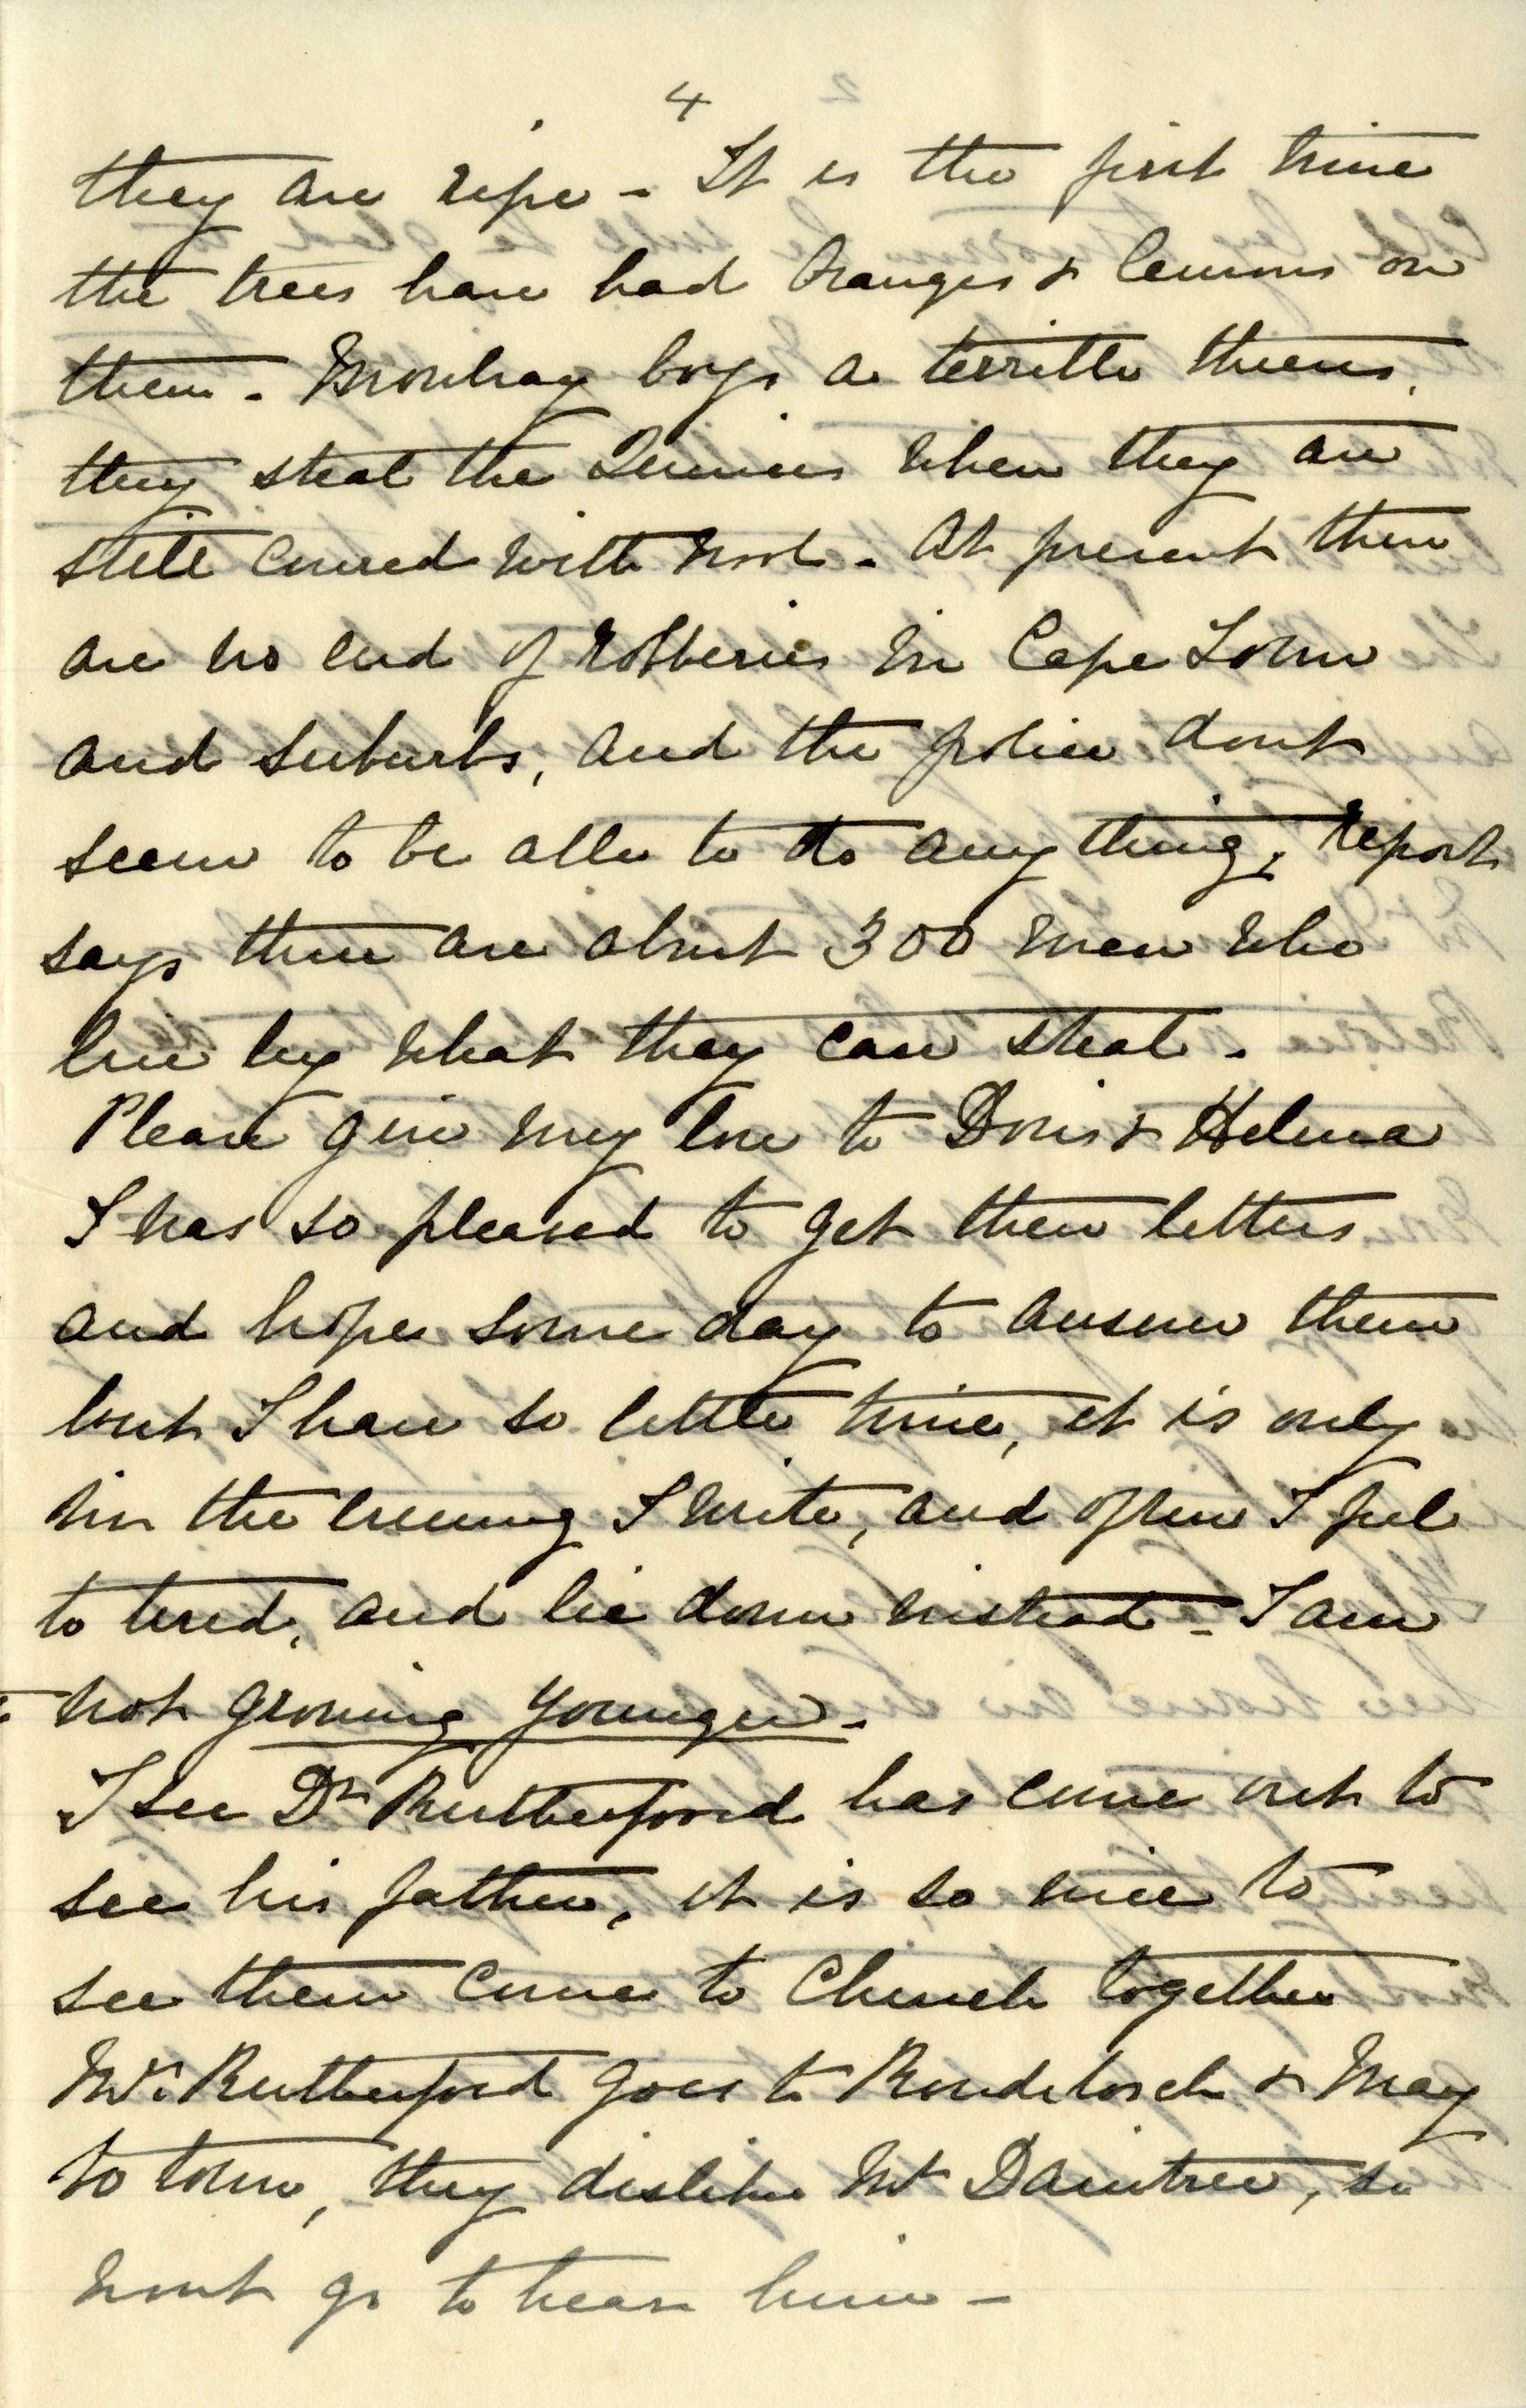 4
they are ripe - It is the first time
the trees have had Oranges & lemons on
them - Mowbray boys a terrible thieves,
they steal the Quinces when they are
still covered with wool - At present there
are no end of Robberies in Cape Town
and Suburbs, and the police dont
seem to be able to do any thing, report
says there are about 300 men who
live by what they can steal -
Please give my love to Doris & Helena
I was so pleased to get their letters
and hope some day to answer them
but I have so little time, it is only
in the evening I write, and often I feel
to tired, and lie down instead - I am
not growing younger -
I see Dr Rutherfoord has come out to
see his father, it is so nice to
see them come to Church together
Mrs Rutherfoord goes to Rondebosch & May
to town, they dislike Mr Daintree, so
wont go to hear him -